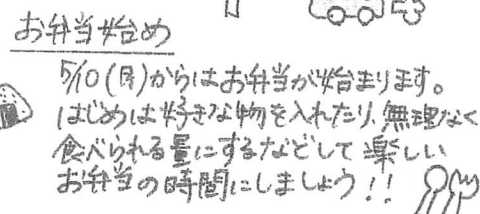 お弁当始め
5/10(月)からはお弁当が始まります。
はじめは好きな物を入れたり、無理なく
食べられる量にするなどして楽しい
お弁当の時間にしましょう!!